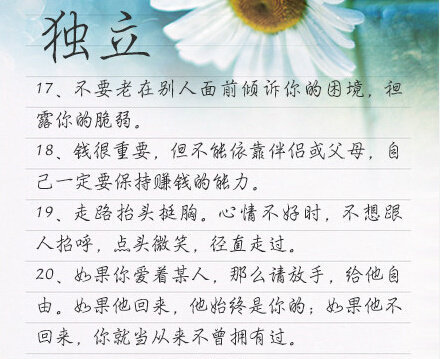 独立
17、不要老在别人面前倾诉你的困境，袒
露你的脆弱。
18、钱很重要，但不能依靠伴侣或父母，自
己一定要保持赚钱的能力。
19、走路抬头挺胸。心情不好时，不想跟
人招呼，点头微笑，径直走过。
20、如果你爱着某人，那么请放手，给他自
由。如果他回来，他始终是你的；如果他不
回来，你就当从来不曾拥有过。